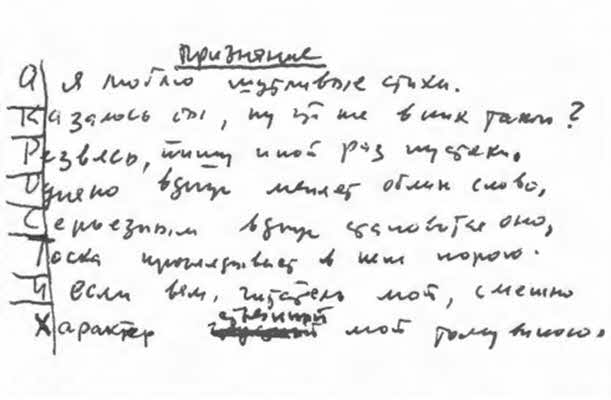 Признание
А я люблю шутливые стихи.
Казалось бы, ну что же в них такого?
Резвясь, пишу иной раз пустяки,
Однако вдруг меняет облик слово,
Серьезным вдруг становится оно,
Тоска проглядывает в нем порою.
И если вам, читатель мой, смешно
Характер странный мой тому виною.